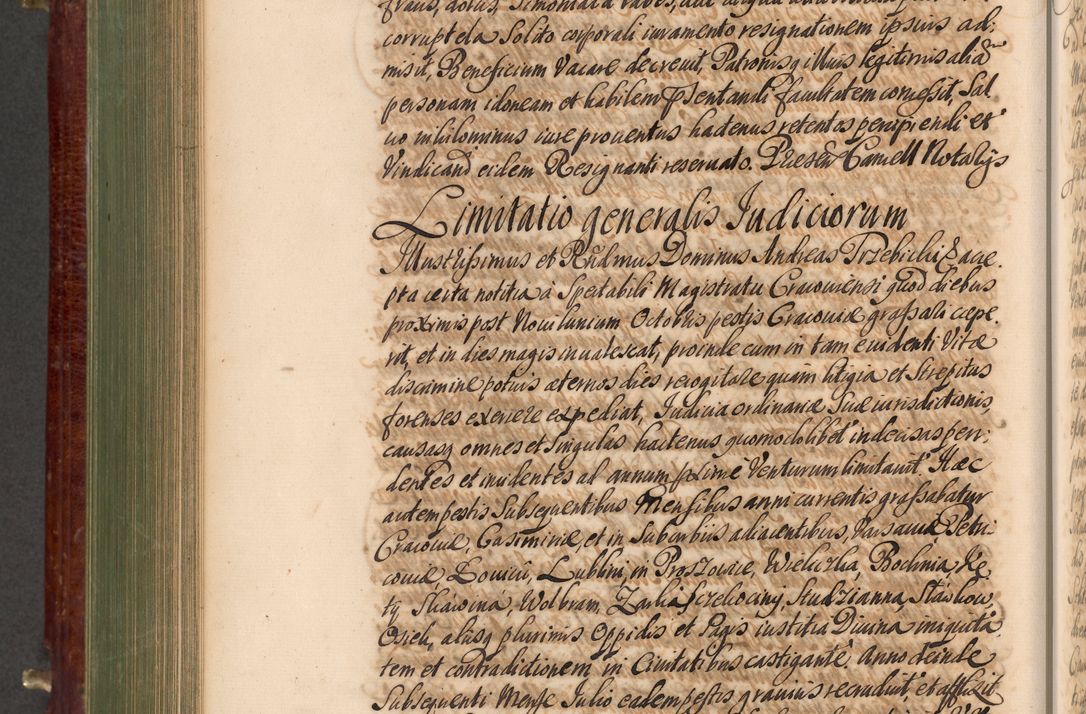 fraus, dolus Simoniaca labes, aut aliqua
corruptela Solito corporali iuramento resignationem ipsius ad:
misit, Beneficium Vacare decreuit, Patronisq illius legitimis alia
personam idoneam et habilem pſentandi facultatem conceſsit, Sal
uo nihilominus iure prouentus hactenus retentos percipiendi et
Vindicand eidem Resignanti reseruato. Cancell Notarijs
Limitatio generalis Iudiciorum
Illustriſsimus et Rñdmus Dominus Andreas Trzebicki & acce
pta certa notitia à Spectabili Magistratu Cracouiensi quod diebus
proximis post Nouilunium Octobris pestis Cracouiæ graſsari cœpe
rit, et in dies magis inualescat, proinde cum in tam euidenti Vitæ
discrimine potius æternos dies recogitare quàm litigia et Strepitus
forenses exercere expediat, Iudicia ordinaria Suæ iurisdictionis,
causasq omnes et Singulas hactenus quomodolibet indecisas pen:
dentes et incidentes ad annum pxime Venturum limitauit Hæc
autem pestis Subsequentibus Mensibus anni currentis graſsabatur
Cracouiæ, Casimiriæ, et in Suburbiis adiacentibus, Varsauiæ Petri:
couiæ Louicii, Lublini, in Proszouice, Wieliczka, Bochnia, Ke:
ty Skawina, Wolbram, Zarki, Szczekociny, Studzianna, Staskow,
Osiek, alijsq plurimis Oppidis et Pagis iustitia Diuina iniquita
tem et contradictionem in Ciuitatibus castigante Anno deinde
Subsequenti Mense Julio eadem pestis grauius recruduit, et afflixit